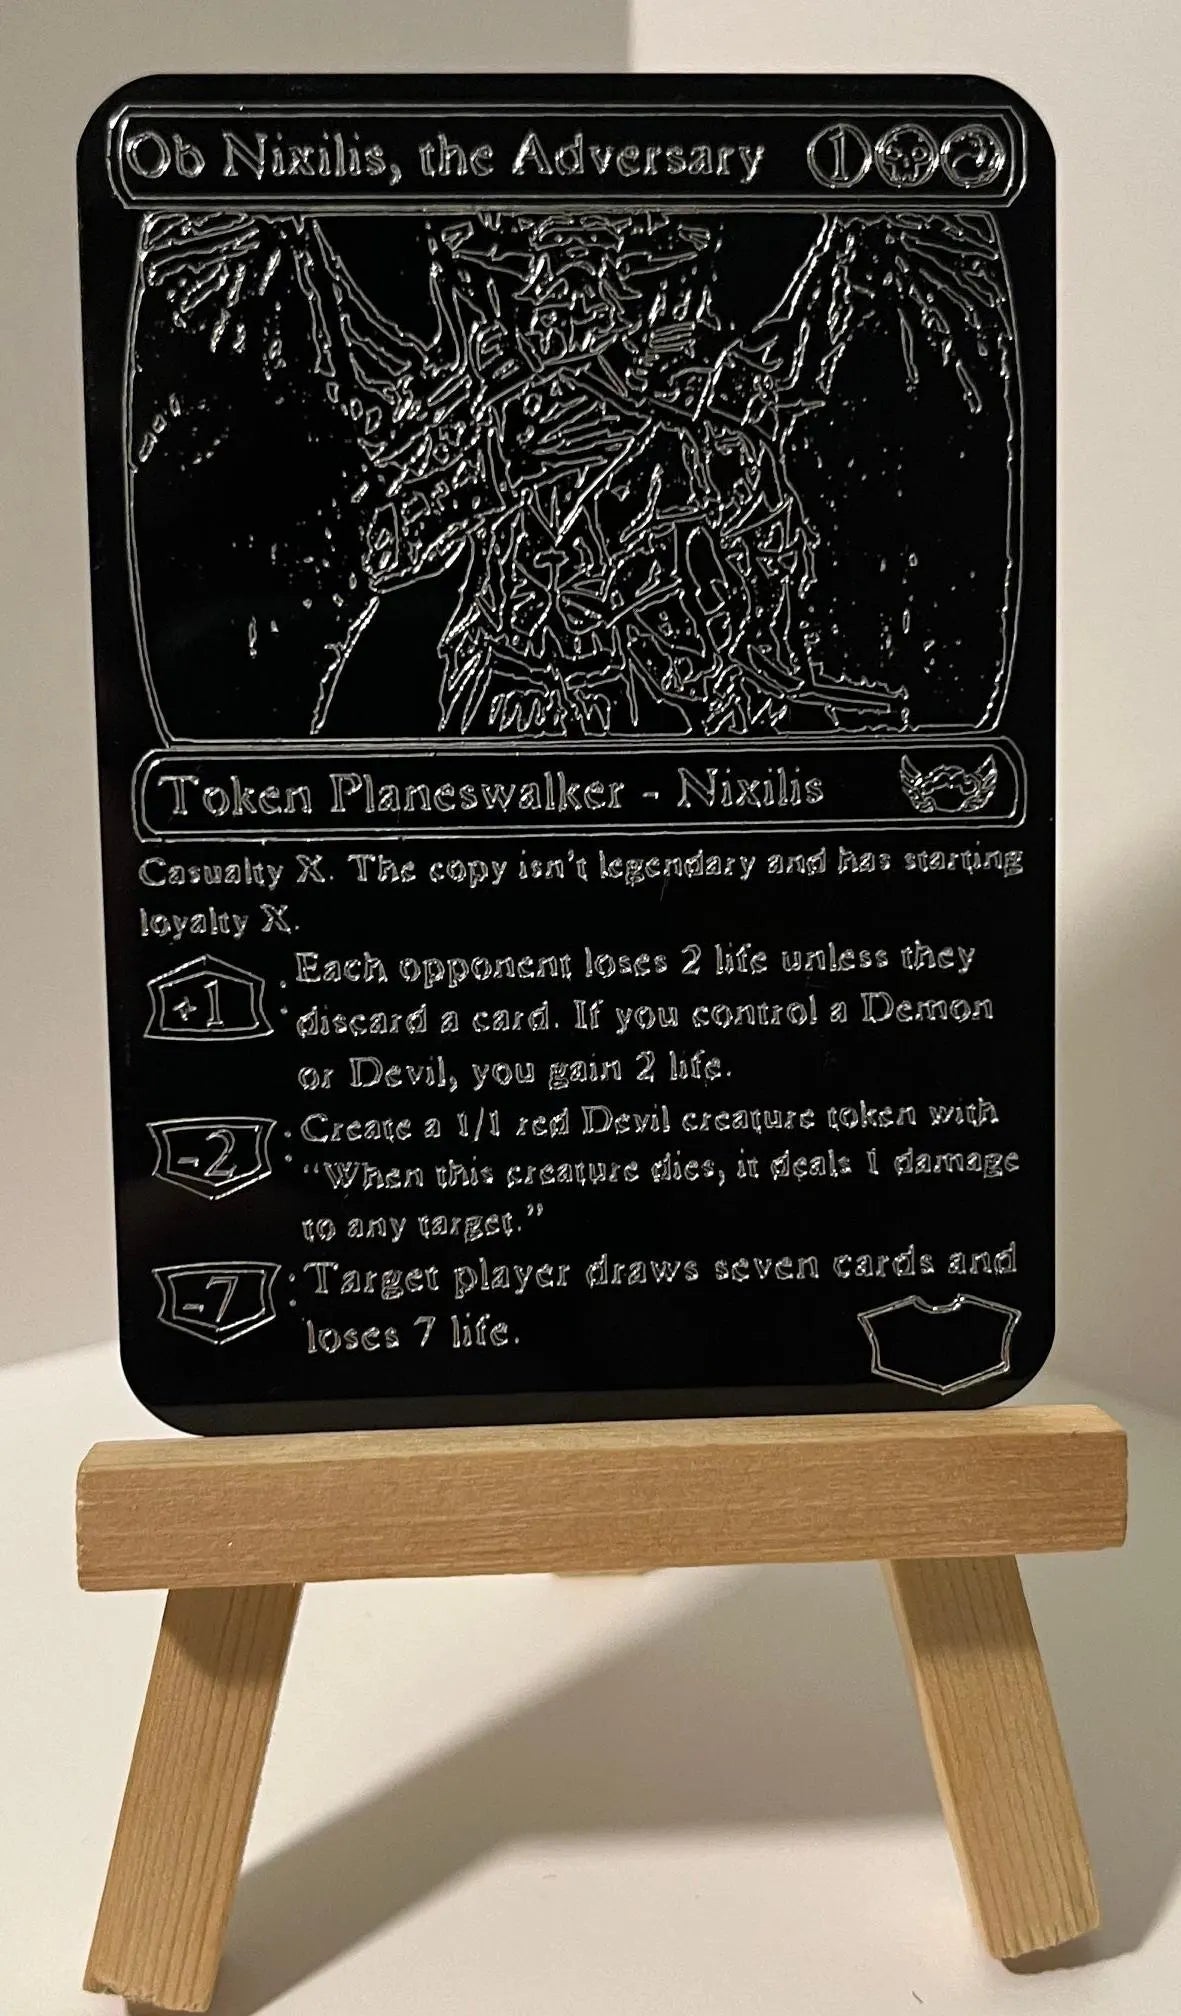 Ob Nixilis, the Adversary 1
Token Planeswalker - Nixilis
Casualty X. The copy isn't legendary and has starting
loyalty X.
+1 : Each opponent loses 2 life unless they
discard a card. If you control a Demon
or Devil, you gain 2 life.
-2 : Create a 1/1 red Devil creature token with
“When this creature dies, it deals 1 damage
to any target.”
-7 : Target player draws seven cards and
loses 7 life.